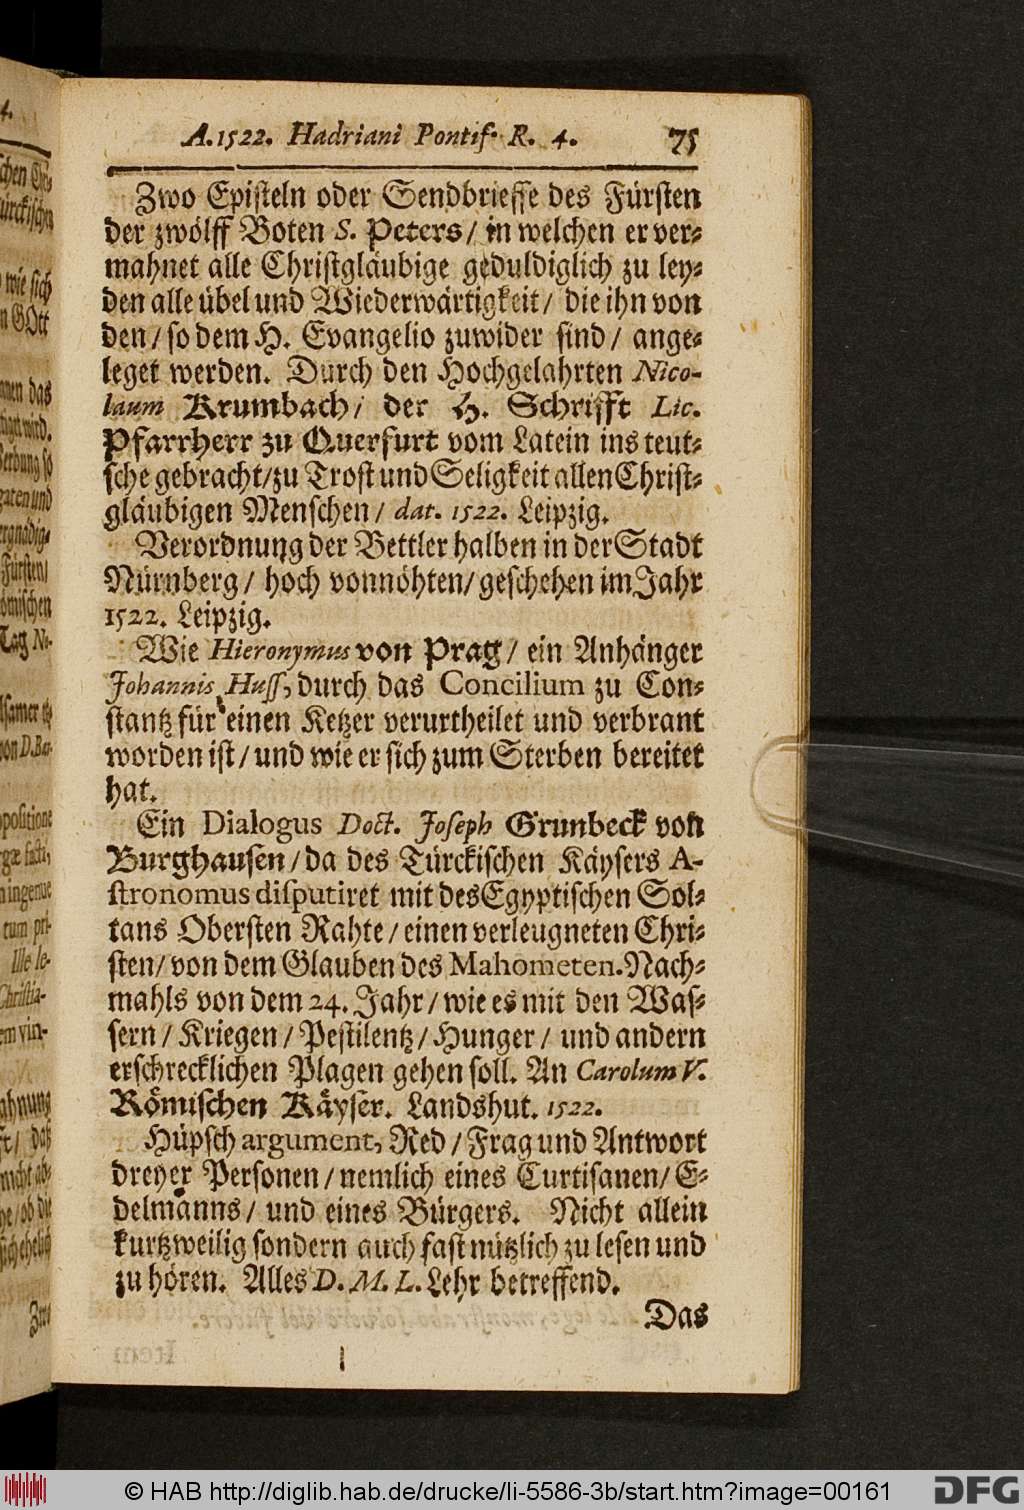 A. 1522. Hadriani Pontif. R. 4. 75
Zwo Episteln oder Sendbrieffe des Fürsten
der zwölff Boten S. Peters/ in welchen er ver-
mahnet alle Christgläubige geduldiglich zu ley-
den alle übel und Wiederwärtigkeit/ die ihn von
den/ so dem H. Evangelio zuwider sind/ ange-
leget werden. Durch den Hochgelahrten Nico-
laum Krumbach/ der H. Schrifft Lic.
Pfarrherr zu Querfurt vom Latein ins teut-
sche gebracht/ zu Trost und Seligkeit allen Christ-
gläubigen Menschen/ dat. 1522. Leipzig.
Verordnung der Bettler halben in der Stadt
Nürnberg/ hoch vonnöhten/ geschehen im Jahr
1522. Leipzig.
Wie Hieronymus von Prag/ ein Anhänger
Johannis Huss, durch das Concilium zu Con-
stantz für einen Ketzer verurtheilet und verbrant
worden ist/ und wie er sich zum Sterben bereitet
hat.
Ein Dialogus Doct. Joseph Grunbeck von
Burghausen/ da des Türckischen Käysers A-
stronomus disputiret mit des Egyptischen Sol-
tans Obersten Rahte/ einen verleugneten Chri-
sten/ von dem Glauben des Mahometen. Nach-
mahls von dem 24. Jahr/ wie es mit den Was-
sern/ Kriegen/ Pestilentz/ Hunger/ und andern
erschrecklichen Plagen gehen soll. An Carolum V.
Römischen Käyser. Landshut. 1522.
Hüpsch argument, Red/ Frag und Antwort
dreyer Personen/ nemlich eines Curtisanen/ E-
delmanns/ und eines Bürgers. Nicht allein
kurtzweilig sondern auch fast nützlich zu lesen und
zu hören. Alles D. M. L. Lehr betreffend.
Das
© HAB http://diglib.hab.de/drucke/li-5586-3b/start.htm?image=00161
DFG